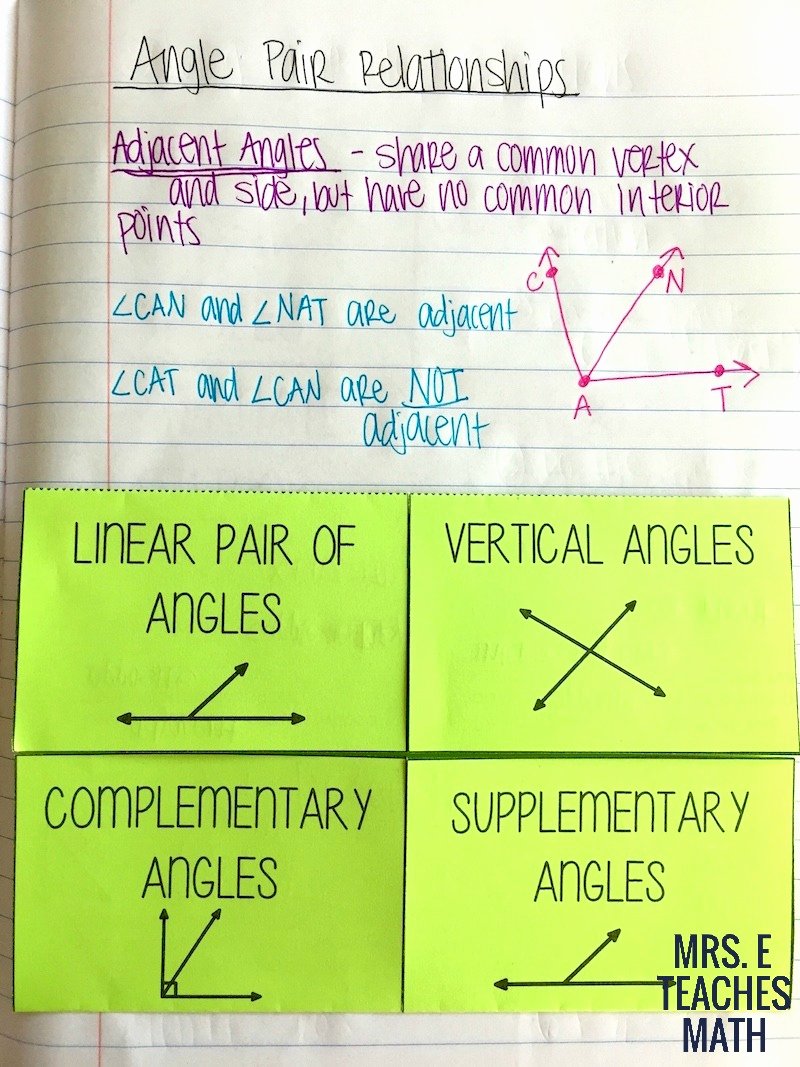 Angle Pair Relationships
Adjacent Angles - share a common vertex
and side, but have no common interior
points
C
N
∠CAN and ∠NAT are adjacent
∠CAT and ∠CAN are NOT
adjacent
A
T
LINEAR PAIR OF
ANGLES
VERTICAL ANGLES
COMPLEMENTARY
ANGLES
SUPPLEMENTARY
ANGLES
MRS. E
TEACHES
MATH